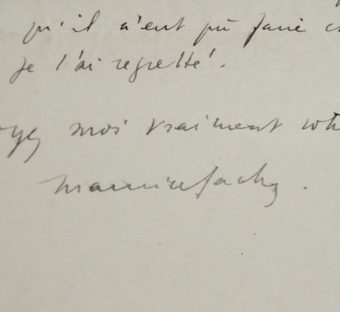 qu'il n'eut pû faire
Je l'ai regretté.
oyez moi vraiment vot
Maurice Sachs.